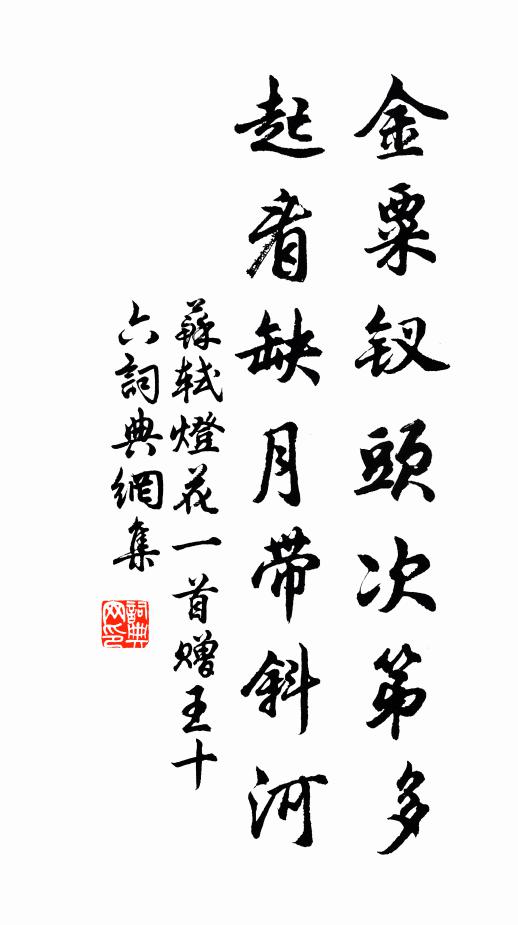 金粟钗頭次第多
起看缺月带斜河
蘇軾燈花一首赠王十
六詞典網集
詞典
网印